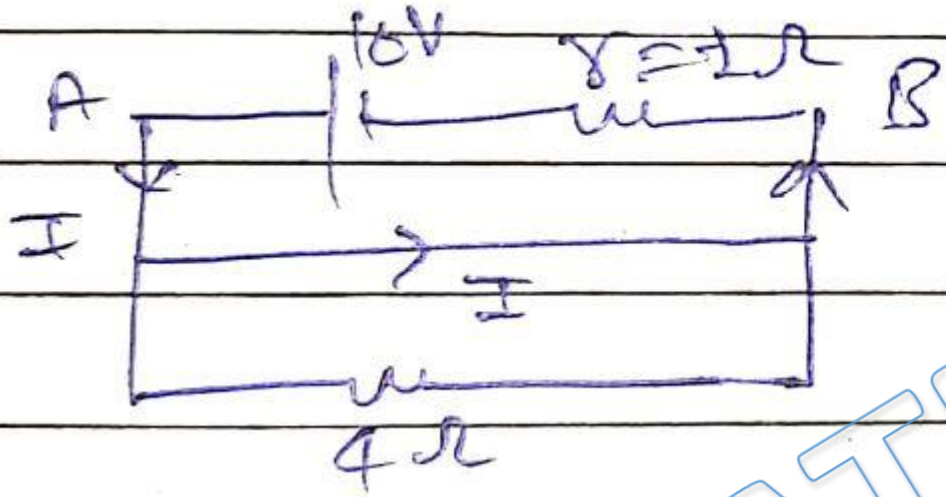 10V
r=1Ω
A
B
I
I
4Ω